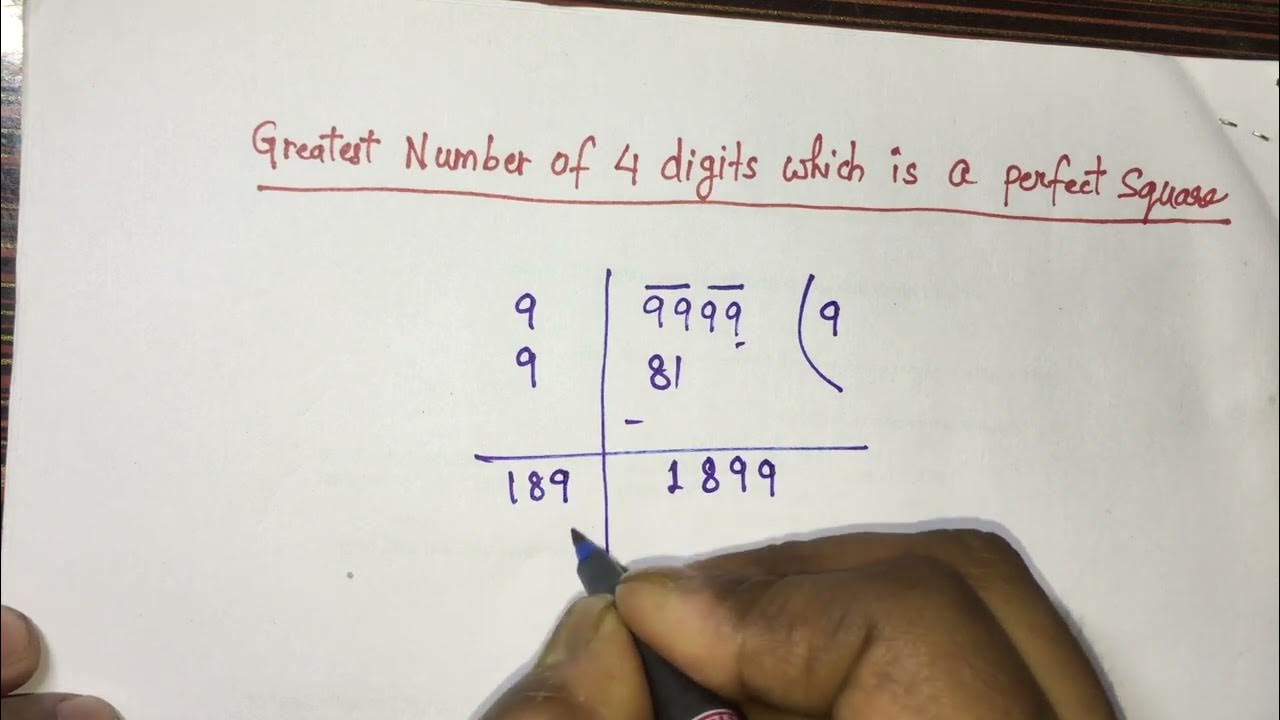 Greatest Number of 4 digits which is a perfect Square
9 9999 9
9 81
-
189 1899